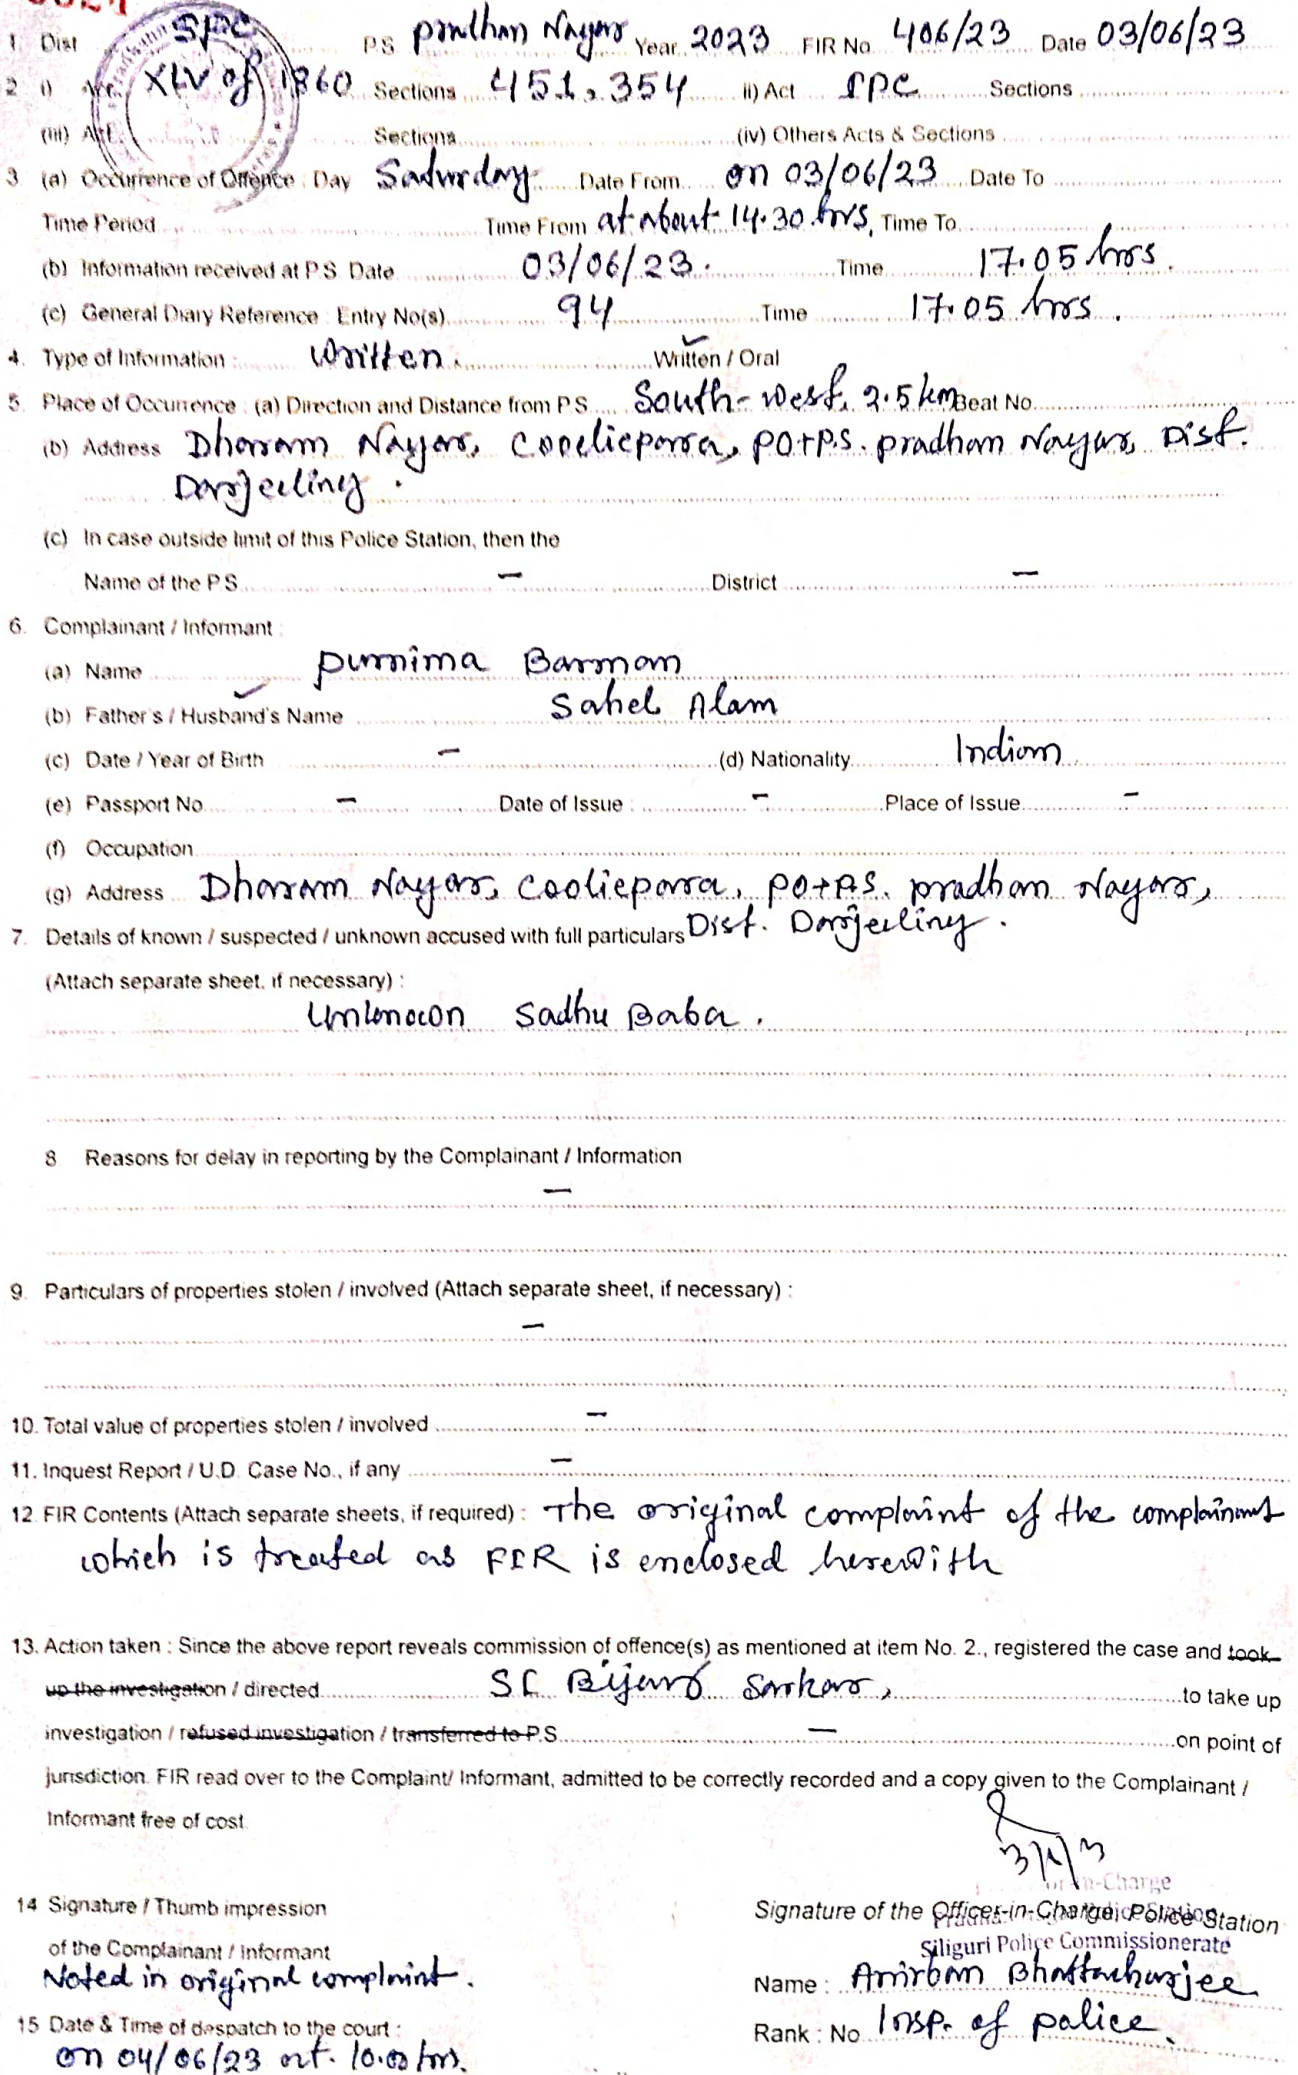 1. Dist SPC P.S Pradhan Nagar Year 2023 FIR No. 406/23 Date 03/06/23
2 i) Act XLV of 1860 Sections 451, 354 ii) Act IPC Sections
(iii) Act Sections (iv) Others Acts & Sections
3 (a) Occurrence of Offence : Day Saturday Date From on 03/06/23 Date To
Time Period Time From at about 14.30 hrs, Time To
(b) Information received at P.S. Date 03/06/23. Time 17.05 hrs.
(c) General Diary Reference : Entry No(s) 94 Time 17.05 hrs.
4. Type of Information : Written. Written / Oral
5. Place of Occurrence : (a) Direction and Distance from P.S. South-West, 2.5 km Beat No.
(b) Address Dharam Nagar, Cooliepara, PO+P.S. Pradhan Nagar, Dist.
Darjeeling.
(c) In case outside limit of this Police Station, then the
Name of the P.S. – District –
6. Complainant / Informant :
(a) Name Purnima Barman
(b) Father's / Husband's Name Sahel Alam
(c) Date / Year of Birth – (d) Nationality Indian
(e) Passport No. – Date of Issue : – Place of Issue –
(f) Occupation
(g) Address Dharam Nagar, Cooliepara, PO+P.S. Pradhan Nagar,
7. Details of known / suspected / unknown accused with full particulars Dist. Darjeeling.
(Attach separate sheet, if necessary) :
Unknown Sadhu Baba.
8 Reasons for delay in reporting by the Complainant / Information
–
9. Particulars of properties stolen / involved (Attach separate sheet, if necessary) :
–
10. Total value of properties stolen / involved –
11. Inquest Report / U.D. Case No., if any –
12. FIR Contents (Attach separate sheets, if required) : The original complaint of the complainant
which is treated as FIR is enclosed herewith
13. Action taken : Since the above report reveals commission of offence(s) as mentioned at item No. 2., registered the case and took
up the investigation / directed SI Bijay Sarkar, to take up
investigation / refused investigation / transferred to P.S. – on point of
jurisdiction. FIR read over to the Complaint/ Informant, admitted to be correctly recorded and a copy given to the Complainant /
Informant free of cost.
in-Charge
14 Signature / Thumb impression Signature of the Officer-in-Charge, Police Station
of the Complainant / Informant Siliguri Police Commissionerate
Noted in original complaint. Name : Anirban Bhattacharjee
15 Date & Time of despatch to the court : Rank : No Insp. of police.
on 04/06/23 at 10.00 hrs.